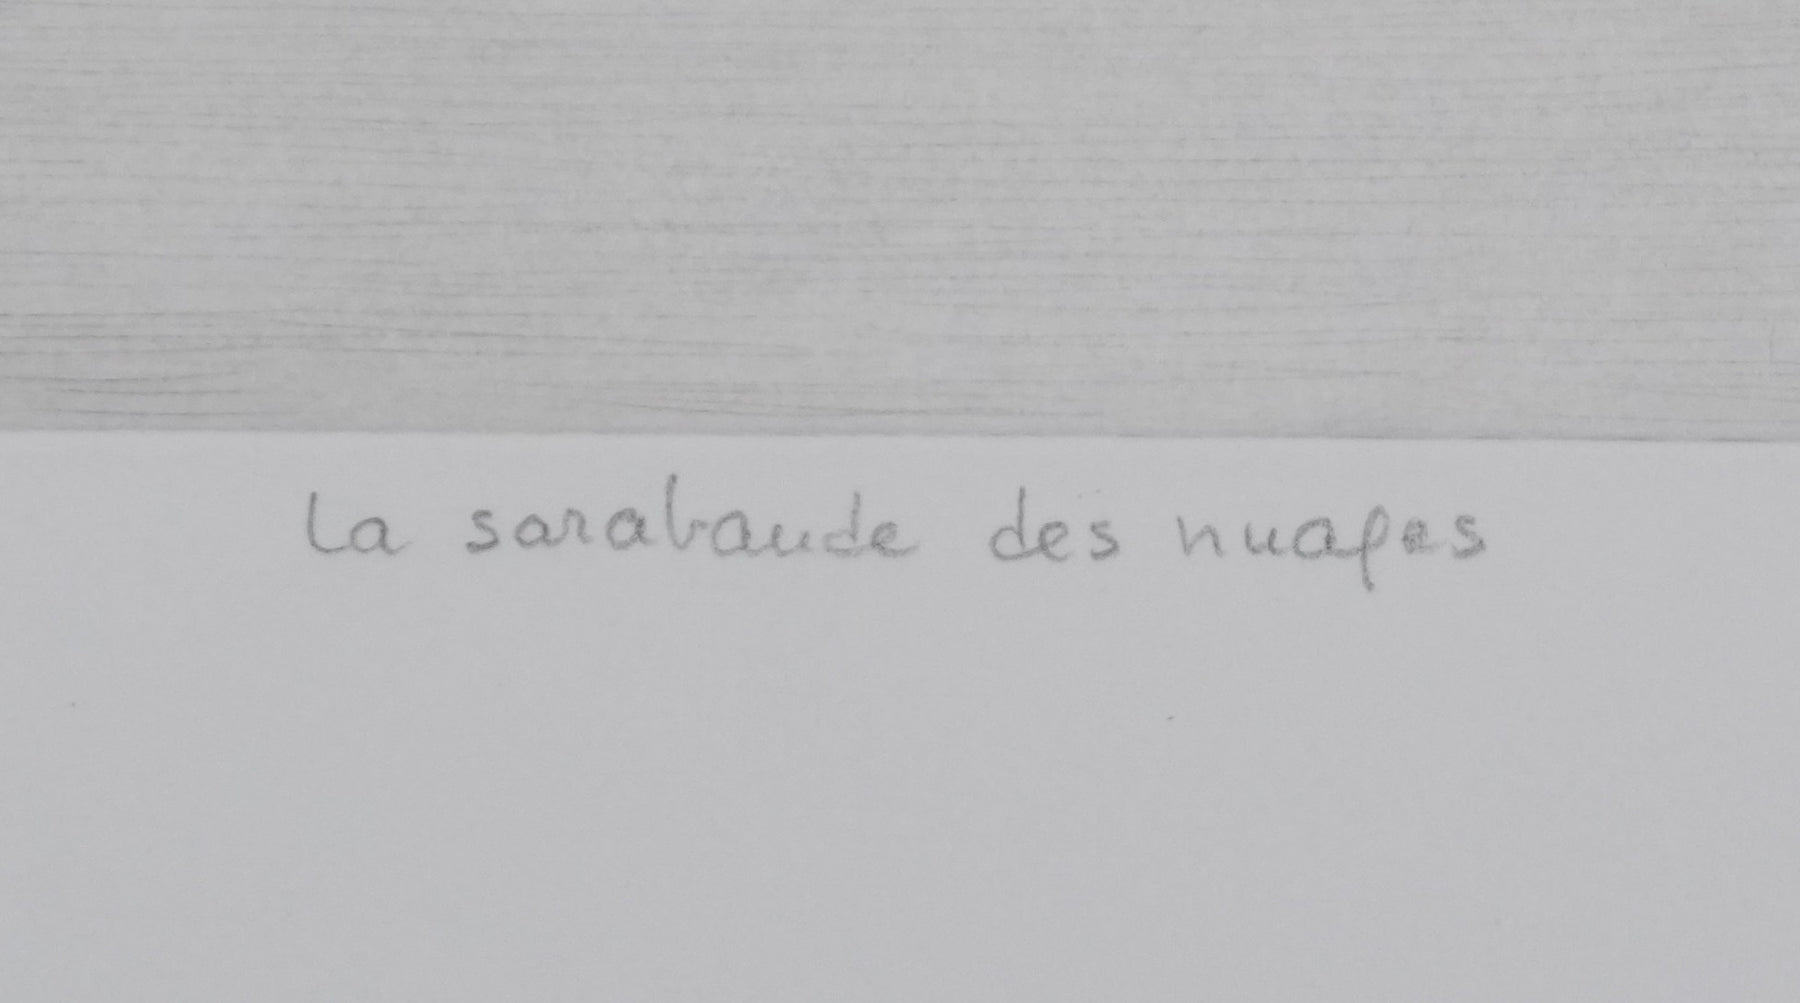 La sarabande des nuages